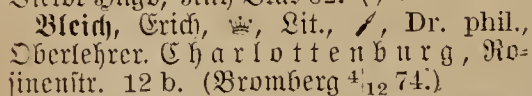 Bleich, Erich, ♕, Lit., Dr. phil.,
Oberlehrer. Charlottenburg, Ro-
sinenstr. 12 b. (Bromberg 4/12 74.)